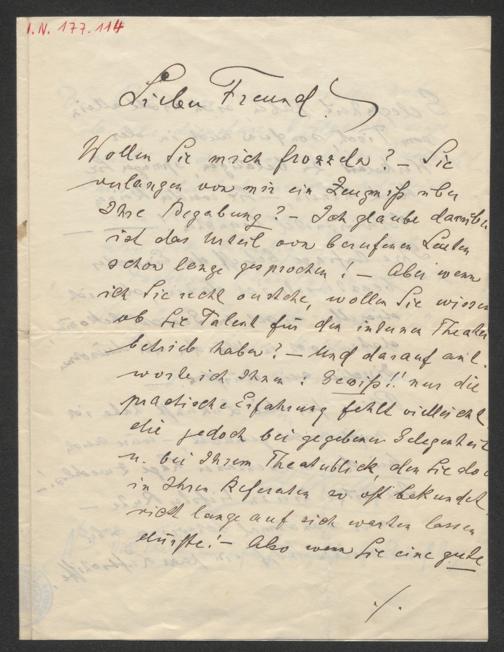 I.N. 177.114
Lieber Freund!
Wollen Sie mich frozzeln? – Sie
verlangen von mir ein Zeugniß über
Ihre Begabung? – Ich glaube darüber
ist das Urteil von berufenen Leuten
schon lange gesprochen! – Aber wenn
ich Sie recht verstehe, wollen Sie wissen
ob Sie Talent für den internen Theater
betrieb haben? – Und darauf ant-
worte ich Ihnen: Gewiß!! nur die
practische Erfahrung fehlt vielleicht
die jedoch bei gegebener Gelegenheit
u. bei Ihrem Theaterblick, den Sie doch
in Ihren Referaten so oft bekundet
nicht lange auf sich warten lassen
dürfte! – Also wenn Sie eine gute
./.